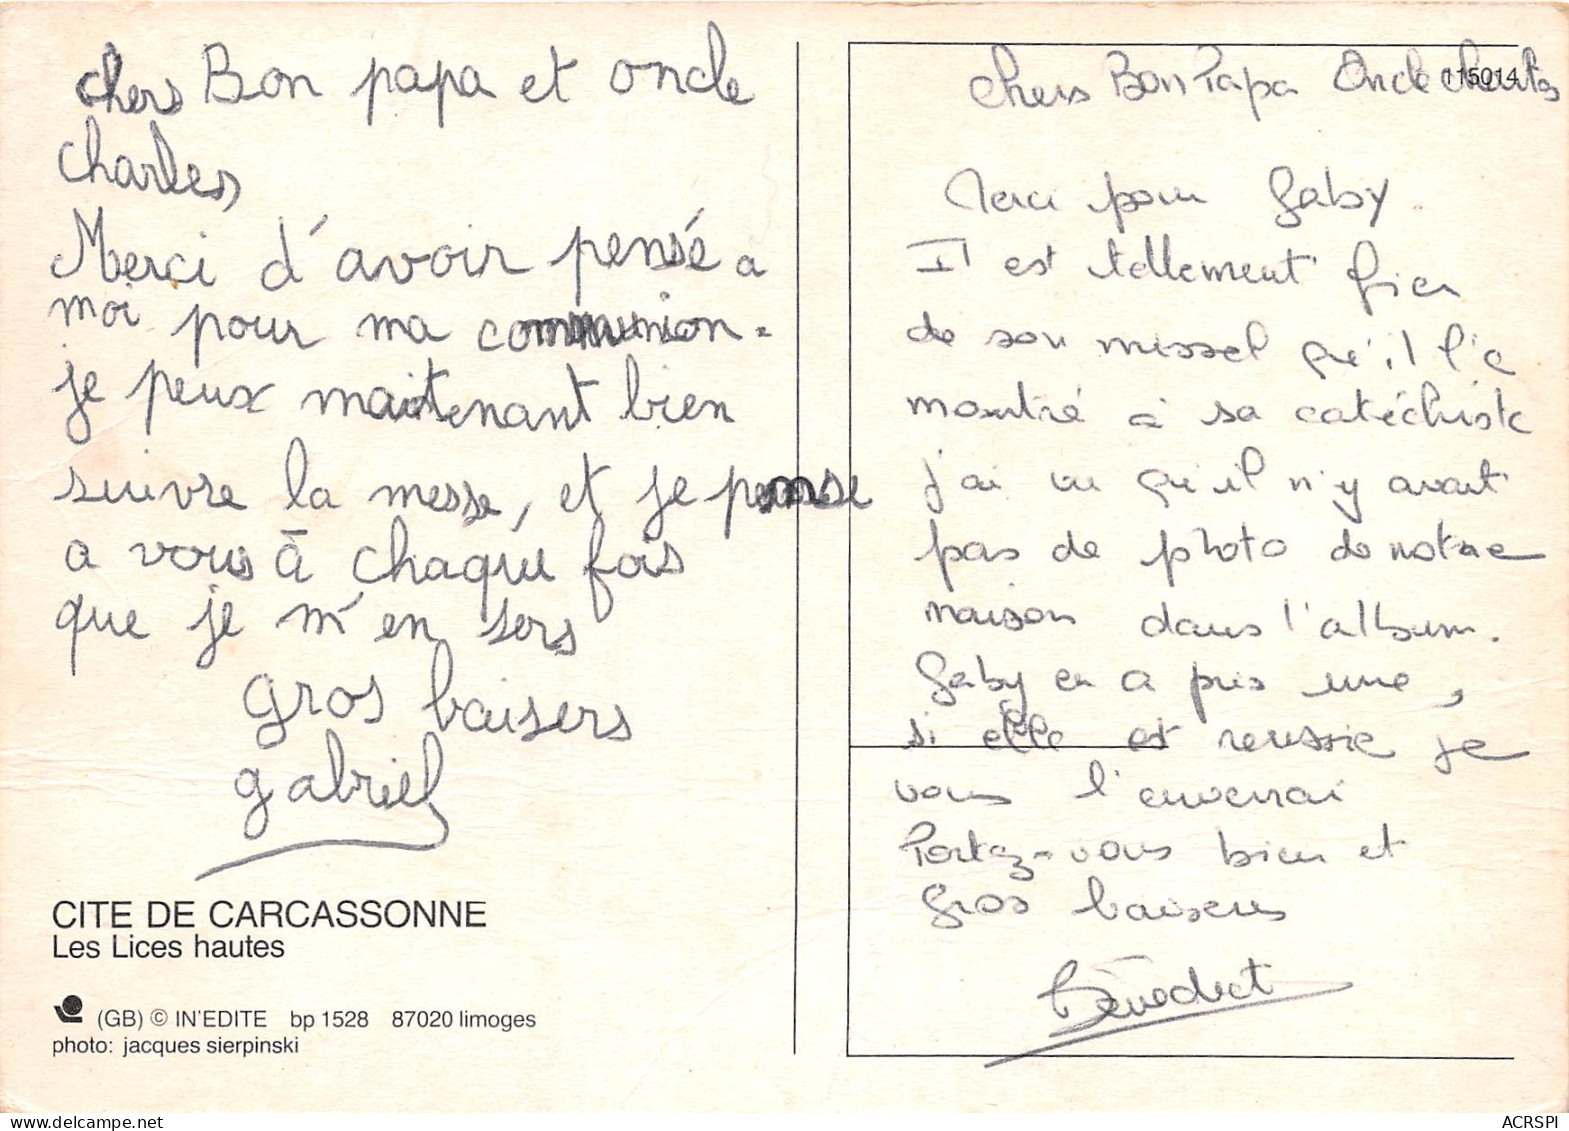 chers Bon papa et oncle
charles
Merci d'avoir pensé a
moi pour ma communion.
je peux maintenant bien
suivre la messe, et je pense
a vous à chaque fois
que je m'en sers
gros baisers
gabriel
CITE DE CARCASSONNE
Les Lices hautes
(GB) © IN'EDITE bp 1528 87020 limoges
photo: jacques sierpinski
115014
Chers Bon Papa Oncle Charles
Merci pour Gaby
Il est tellement fier
de son missel qu'il l'a
montré à sa catéchiste
j'ai vu qu'il n'y avait
pas de photo de notre
maison dans l'album.
Gaby en a pris une,
si elle est reussie je
vous l'enverrai
Portez-vous bien et
Gros baisers
Bénédict
ACRSPI